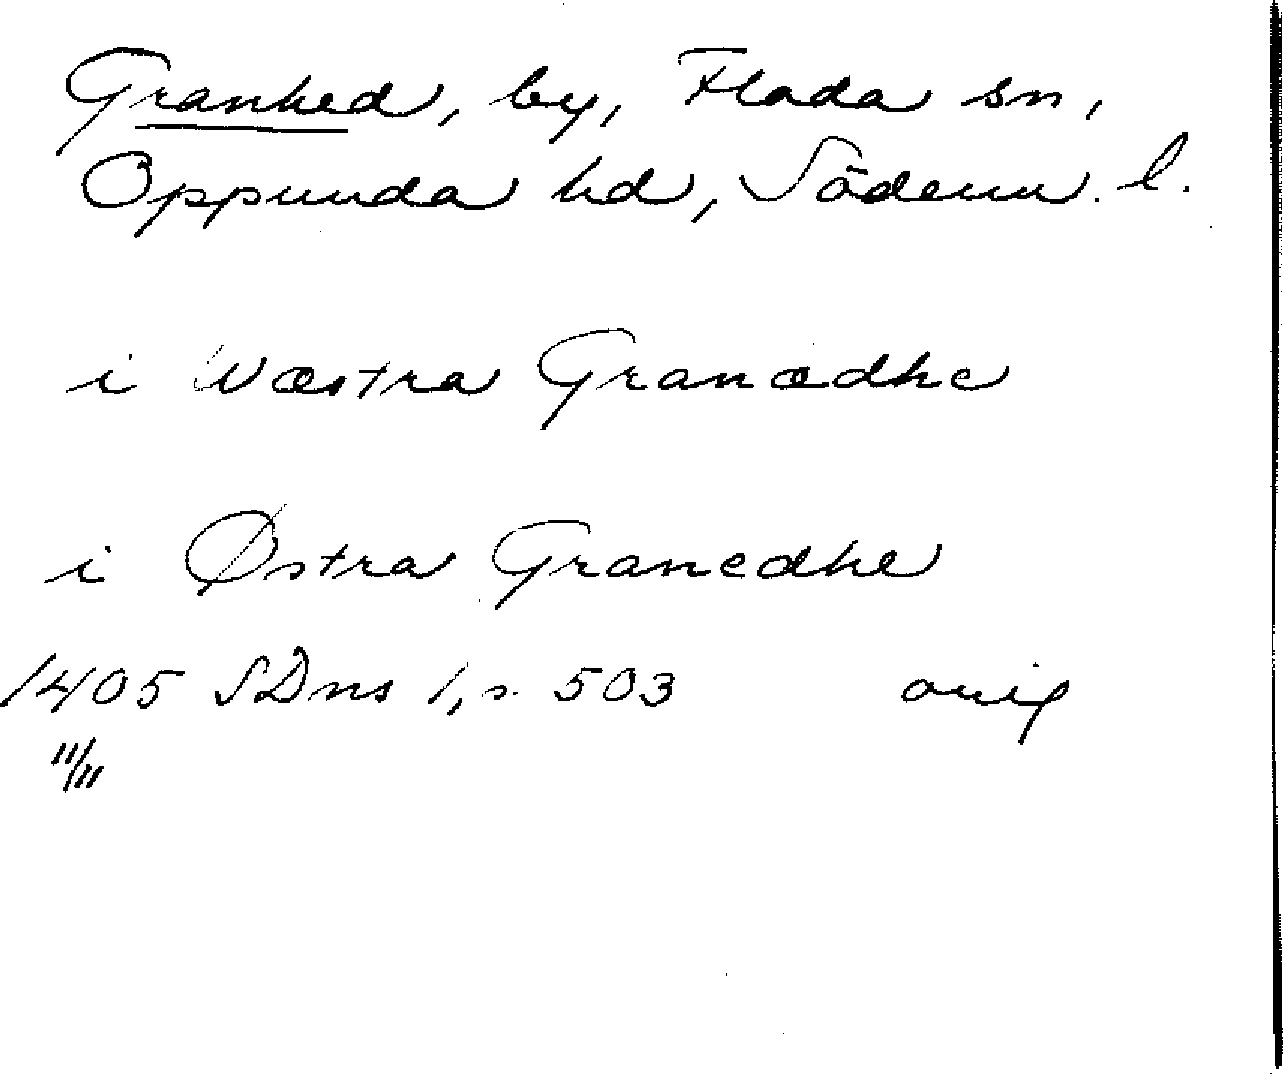 Granhed, by, Floda sn,
Oppunda hd, Söderm. l.
i Wæstra Granædhe
i Østra Granedhe
1405 SDns 1, s. 503 orig
11/11